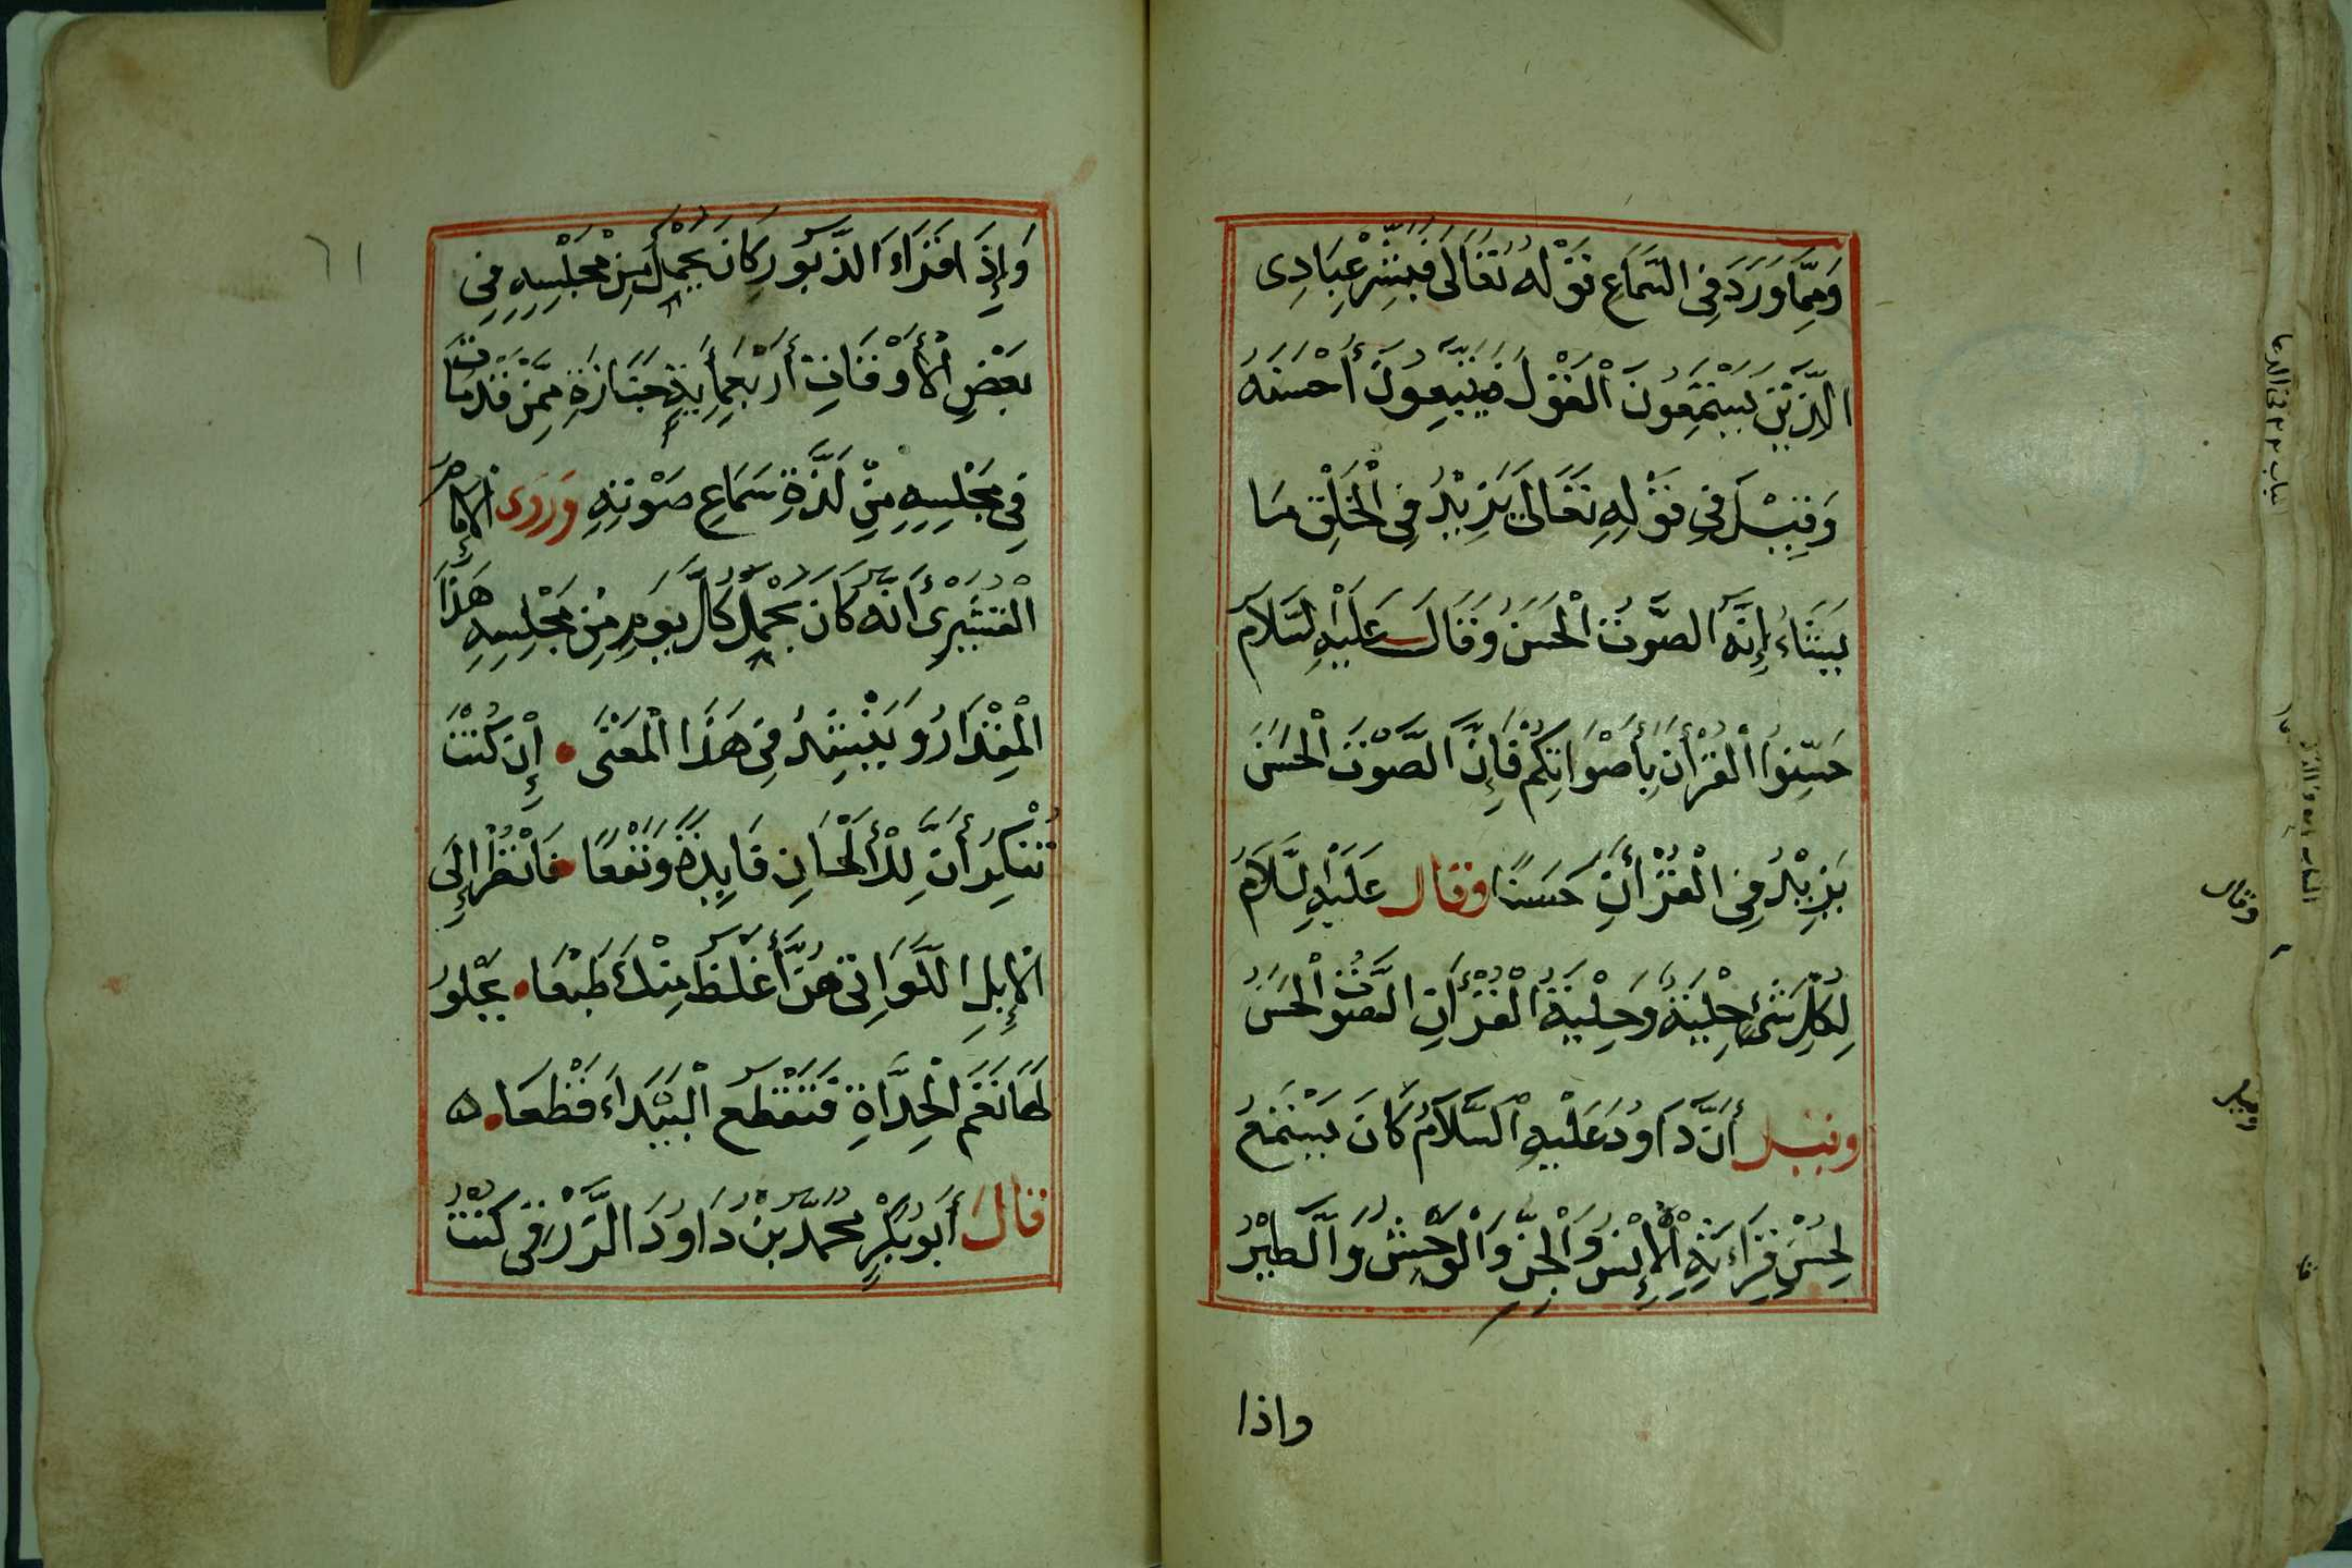 وَمِمَّا وَرَدَ فِي السَّمَاعِ قَوْلُهُ تَعَالَى فَبَشِّرْ عِبَادِى
الَّذِيْنَ يَسْتَمِعُونَ الْقَوْلَ فَيَتَّبِعُونَ أَحْسَنَهُ
وَقِيْلَ فِي قَوْلِهِ تَعَالَى يَزِيْدُ فِي الْخَلْقِ مَا
يَشَاءُ إِنَّهُ الصَّوْتُ الْحَسَنُ وَقَالَ عَلَيْهِ السَّلَامُ
حَسِّنُوا الْقُرْأَنَ بِأَصْوَاتِكُمْ فَإِنَّ الصَّوْتَ الْحَسَنَ
يَزِيْدُ فِي الْقُرْأَنِ حَسَنًا وَقَالَ عَلَيْهِ السَّلَامُ
لِكُلِّ شَيْءٍ حِلْيَةٌ وَحِلْيَةُ الْقُرْأَنِ الصَّوْتُ الْحَسَنُ
وقيل أَنَّ دَاوُدَ عَلَيْهِ السَّلَامُ كَانَ يَسْتَمِعُ
لِحُسْنِ قِرَاءَتِهِ الْإِنْسُ وَالْجِنُّ وَالْوَحْشُ وَالطَّيْرُ
واذا
٦١
وَإِذَا قَرَاءَ الزَّبُورَ كَانَ يُحْمَلُ مِنْ مَجْلِسِهِ فِي
بَعْضِ الْأَوْقَاتِ أَرْبَعُمِأَيَةِ جَنَازَةٍ مِمَّنْ قَدْ مَاتَ
فِي مَجْلِسِهِ مِنْ لَذَّةِ سَمَاعِ صَوْتِهِ وَرَوَى الْإِمَامُ
الْقُشَيْرِىُّ أَنَّهُ كَانَ يُحْمَلُ كُلَّ يَوْمٍ مِنْ مَجْلِسِهِ هَذَا
الْمِقْدَارُ وَيُنْشِدُ فِي هَذَا الْمَعْنَى إِنْ كُنْتَ
تُنْكِرُ أَنَّ لِلْأَلْحَانِ فَايِدَةً وَنَفْعًا فَانْظُرْ إِلَى
الْإِبِلِ اللَّوَاتِي هُنَّ أَغْلَظُ مِنْكَ طَبْعَا تَجْلُو
لَهَا نَغَمُ الْحِدَاةِ فَتَقْطَعُ الْبَيْدَاءَ قَطْعَا ه
قَالَ أَبُو بَكْرٍ مُحَمَّدُ بْنُ دَاوُدَ الدَّرْقِي كُنْتُ